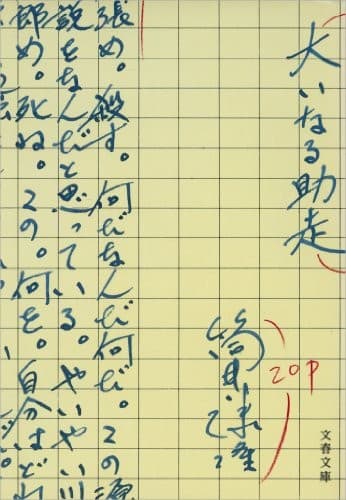 大いなる助走
筒井康隆
20P
張め。殺す。何だなんだ何だ。この源
説をなんだと思っている。やいやい川
郎め。死ね。この。何を。自分はど
文春文庫